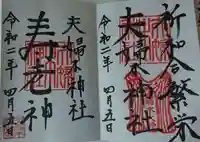 祈和合繁栄
夫婦木神社
令和二年 四月五日
夫婦木神社
寿老神
令和二年 四月五日